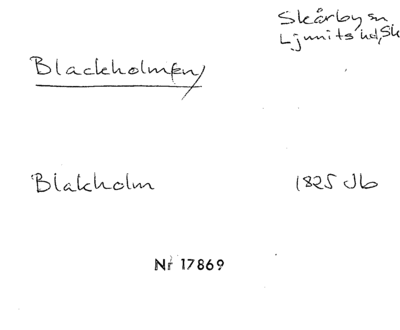 Skårby sn
Ljunits hd, Sk
Blackholmen
Blakholm 1825 Jb
Nr 17869